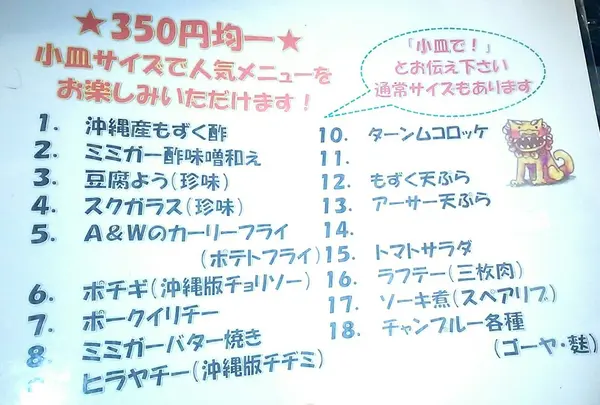 ★350円均一★
小皿サイズで人気メニューを
お楽しみいただけます!
「小皿で!」
とお伝え下さい
通常サイズもあります
1. 沖縄産もずく酢
2. ミミガー酢味噌和え
3. 豆腐よう(珍味)
4. スクガラス(珍味)
5. A&Wのカーリーフライ
(ポテトフライ)
6. ポチギ(沖縄版チョリソー)
7. ポークイリチー
8. ミミガーバター焼き
ヒラヤチー(沖縄版チヂミ)
10. ターンムコロッケ
11.
12. もずく天ぷら
13. アーサー天ぷら
14.
15. トマトサラダ
16. ラフテー(三枚肉)
17. ソーキ煮(スペアリブ)
18. チャンプルー各種
(ゴーヤ・麩)